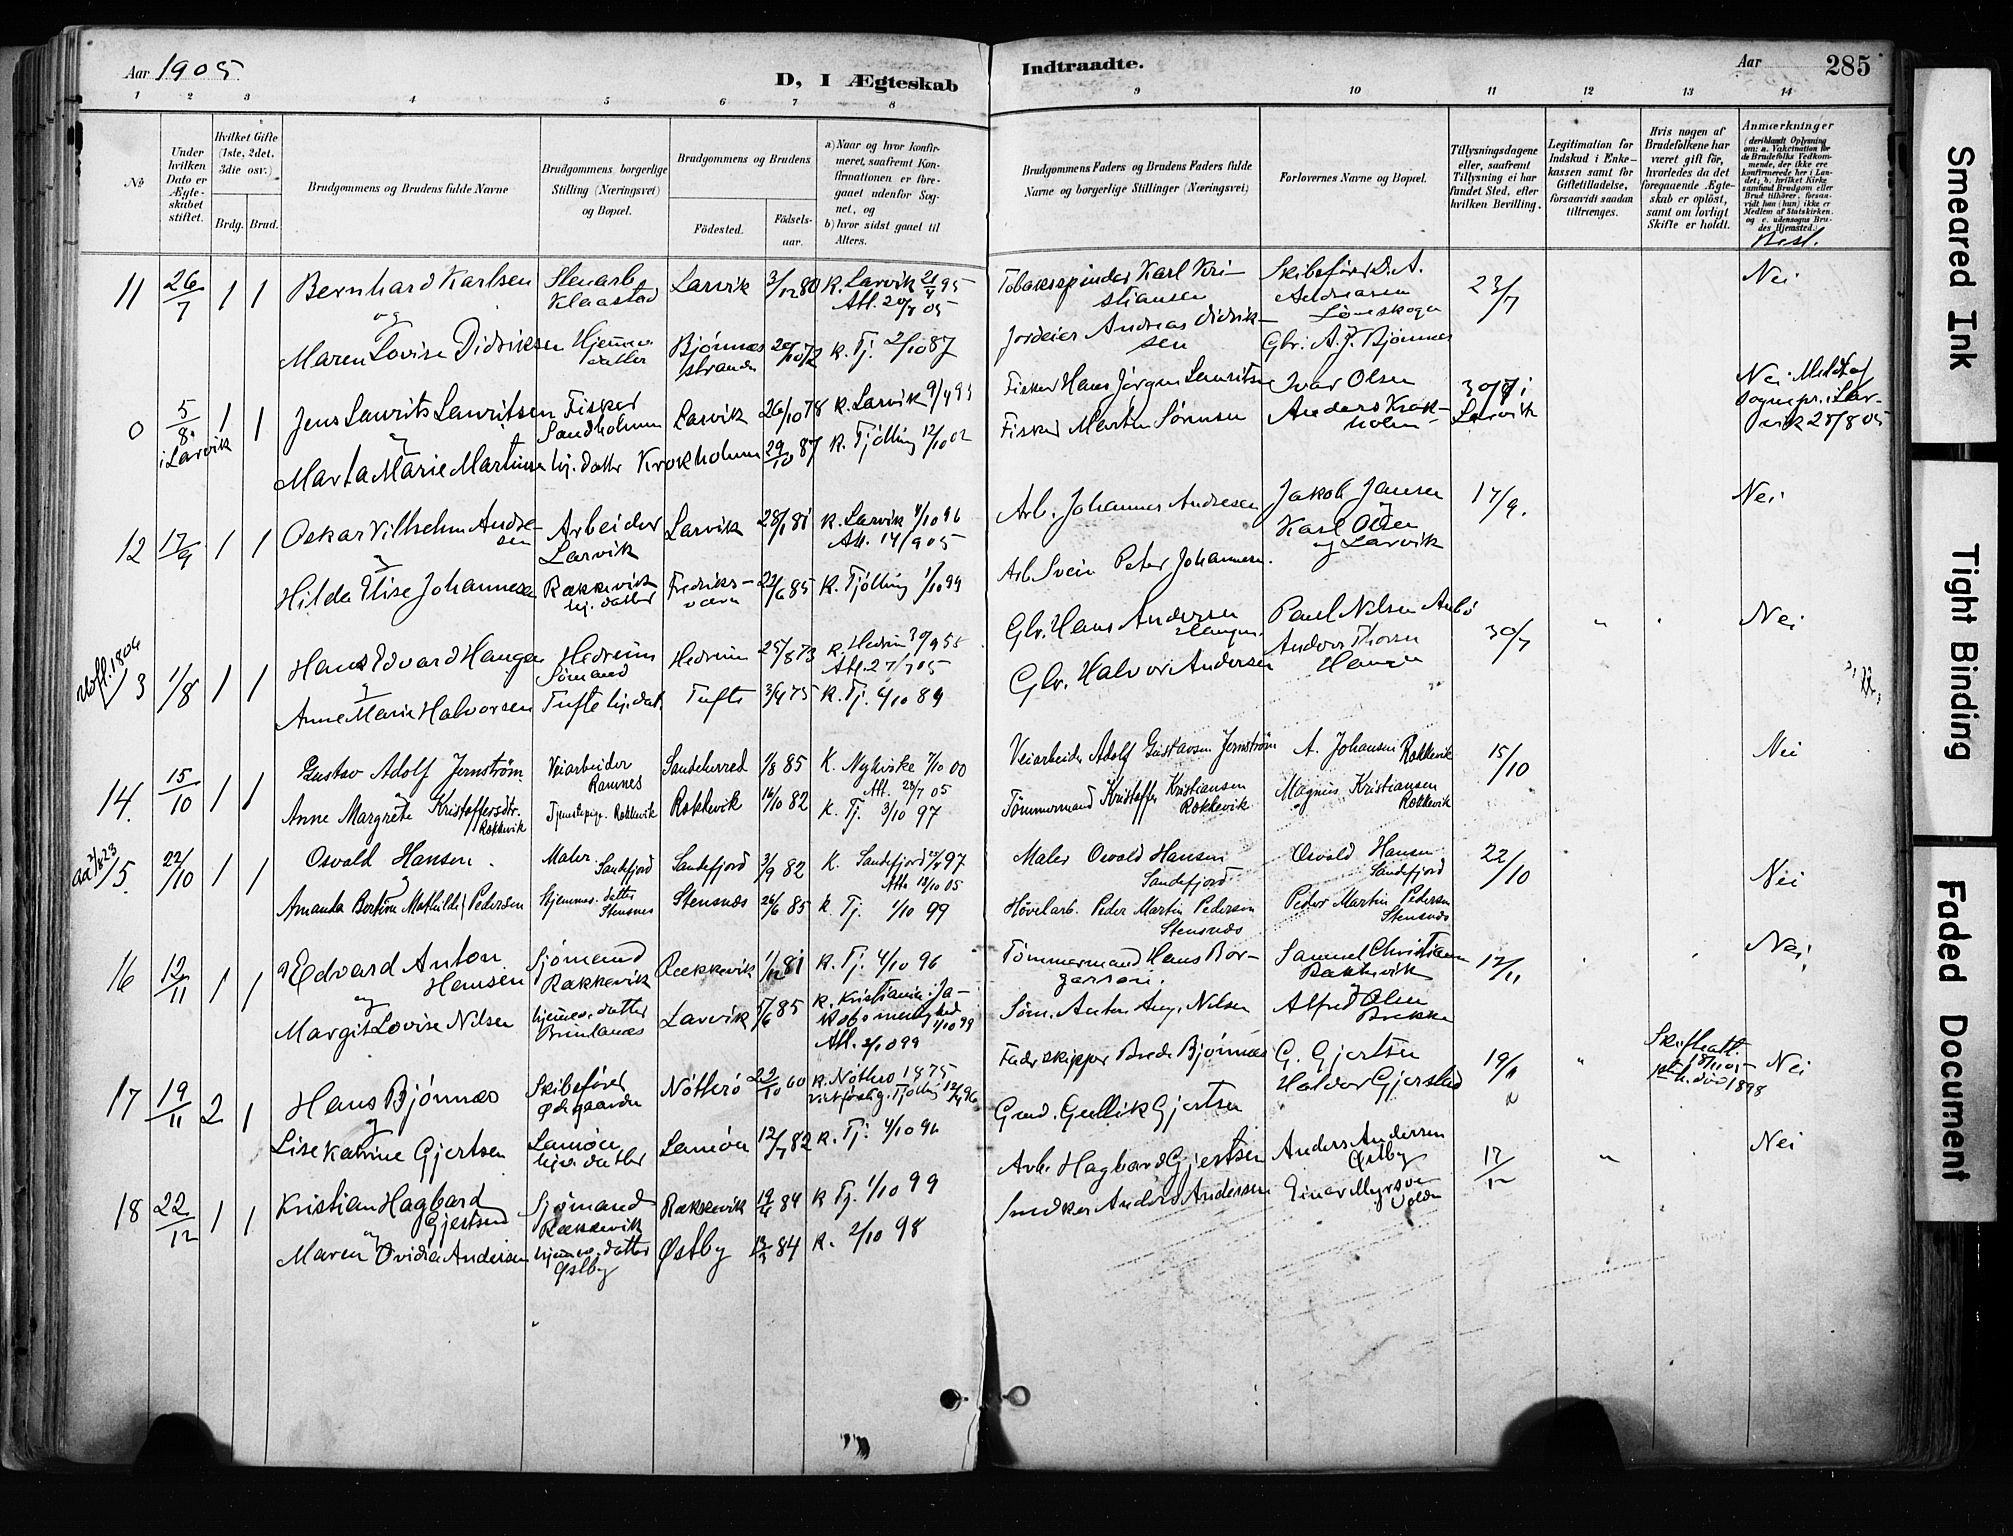 Aar 1905
D, I Ægteskab
Indtraadte.
Aar
285
1 2 3 4 5 6 7 8 9 10 11 12 13 14
№
Under hvilken Dato er Ægteskabet stiftet.
Hvilket Gifte (1ste, 2det, 3die osv.)
Brdg. Brud.
Brudgommens og Brudens fulde Navne
Brudgommens borgerlige Stilling (Næringsvei) og Bopæl.
Brudgommens og Brudens
Födested.
Födselsaar.
a) Naar og hvor konfirmeret, saafremt Konfirmationen er foregaaet udenfor Sognet, og
b) hvor sidst gaaet til Alters.
Brudgommens Faders og Brudens Faders fulde Navne og borgerlige Stillinger (Næringsvei)
Forlovernes Navne og Bopæl.
Tillysningsdagene eller, saafremt Tillysning ei har fundet Sted, efter hvilken Bevilling.
Legitimation for Indskud i Enkekassen samt for Giftetilladelse, forsaavidt saadan tiltrænges.
Hvis nogen af Brudefolkene har været gift før, hvorledes da det foregaaende Ægteskab er oplöst, samt om lovligt Skifte er holdt.
Anmærkninger
(deriblandt Oplysning om: a. Vakcination for de Brudefolks Vedkommende, der ikke ere konfirmerede her i Landet; b. hvilket Kirkesamfund Brudgom eller Brud tilhörer, forsaavidt han (hun) ikke er Medlem af Statskirken, og c. udensogns Brudes Hjemsted.)
Besl.
11 26/7 1 1 Bernhard Karlsen Stenarb. Klaastad Larvik 3/12 80 K. Larvik 21/4 95 Att. 20/7 05
Tobaksspinder Karl Kristiansen Skibsfører D. A. Andreasen Løveskogen 23/7 Nei
og
Maren Lovise Didriksen Hjemmedatter Bjønnes stranden 20/10 72 K. Tj. 2/10 87
Jordeier Andreas Didriksen Gbr. A. J. Bjønnes
0 5/8 i Larvik 1 1 Jens Laurits Lauritsen Fisker Sandholmen Larvik 26/10 78 K. Larvik 9/4 93
Fisker Hans Jørgen Lauritsen Ivar Olsen 30/7 i Larvik Nei Meldt af Sognepr. i Larvik 28/8 05
og
Marta Marie Martinsen hj. datter Krokholmen 29/10 87 K. Tjølling 12/10 02
Fisker Martin Sørensen Anders Krokholm
12 17/9 1 1 Oskar Vilhelm Andresen Arbeider Larvik Larvik 28/1 81 K. Larvik 4/10 96 Att. 14/9 05
Arb. Johannes Andresen Jakob Jansen og 17/9. Nei
og
Hilda Elise Johannesen Rækkevik hj. datter Fredriksværn 22/6 85 K. Tjølling 1/10 99
Arb. Svein Peter Johannesen. Karl Olsen Larvik
Uofl. 1804 /3 1/8 1 1 Hans Edvard Haugen Hedrum Sømand Hedrum 25/8 73 K. Hedrum Att. 27/7 05
Gbr. Hans Andersen Haugen Paul Nilsen Aulø 30/7 " Nei
og
Anne Marie Halvorsen Tufte hj. dat. Tufte 3/4 75 K. Tj. 4/10 89
Gbr. Halvor Andersen Anders Thoren Haugen
14. 15/10 1 1 Gustav Adolf Jernström Veiarbeider Ramnes Sandeherred 1/8 85 K. Nykirke 7/10 00 Att. 28/7 05
Veiarbeider Adolf Gustavsen Jernström A. Johansen Rækkevik 15/10 Nei
Anne Margrete Kristoffersdtr. Rækkevik Tjenestepige Rækkevik Rækkevik 16/10 82 K. Tj. 3/10 97
Tömmermand Kristoffer Kristiansen Rækkevik Magnus Kristiansen Rækkevik
15. 22/10 1 1 Osvald Hansen. Maler. Sandefjord Sandefjord 3/9 82 K. Sandefjord 97 Att. 18/10 05
Maler Osvald Hansen Sandefjord Osvald Hansen Sandefjord 22/10 Nei
og
Amanda Bertine Mathilde Pedersen Hjemmev. datter Stensnes Stensnæs 26/6 85 K. Tj. 1/10 99
Hövelarb. Peder Martin Pedersen Stensnæs Peder Martin Pedersen Stensnæs
16 12/11 1 1 Edvard Anton Hansen Sjømand Rækkevik Rækkevik 1/12 81 K. Tj. 4/10 96
Tømmermand Hans Borgersen. Samuel Christiansen Rækkevik 12/11 Nei
og
Margit Lovise Nilsen hjemmev. datter Brunlanæs Larvik 17/6 85 K. Kristiania Jakobs menighed 1/10 99 Att. 2/10 99
Søm. Anton Aug. Nilsen Alfred Olsen Brekke
17 19/11 2 1 Hans Bjønnæs Skibsfører Ødegaarden Nötterö 22/10 60 K. Nötterö 1875
Fader skipper Brede Bjønnæs G. Gjertsen 19/11 " Skifteatt. 18/11 05 død 1898 Nei
og
Lise Katrine Gjertsen Lamøen hjv. datter Lamøen 12/7 82 K. Tj. 4/10 96
Grd. Gullik Gjertsen Halvor Gjerstad
18 22/12 1 1 Kristian Hagbard Gjertsen Sjømand Rækkevik Rækkevik 19/4 84 K. Tj. 1/10 99
Arb. Hagbard Gjertsen Anders Andersen Østby 17/12 " Nei
og
Maren Ovidia Andersen hjemmev. datter Østby Østby 13/3 84 K. 2/10 98
Snedker Anders Andersen Einar Myrsvolden
Smeared Ink
Tight Binding
Faded Document